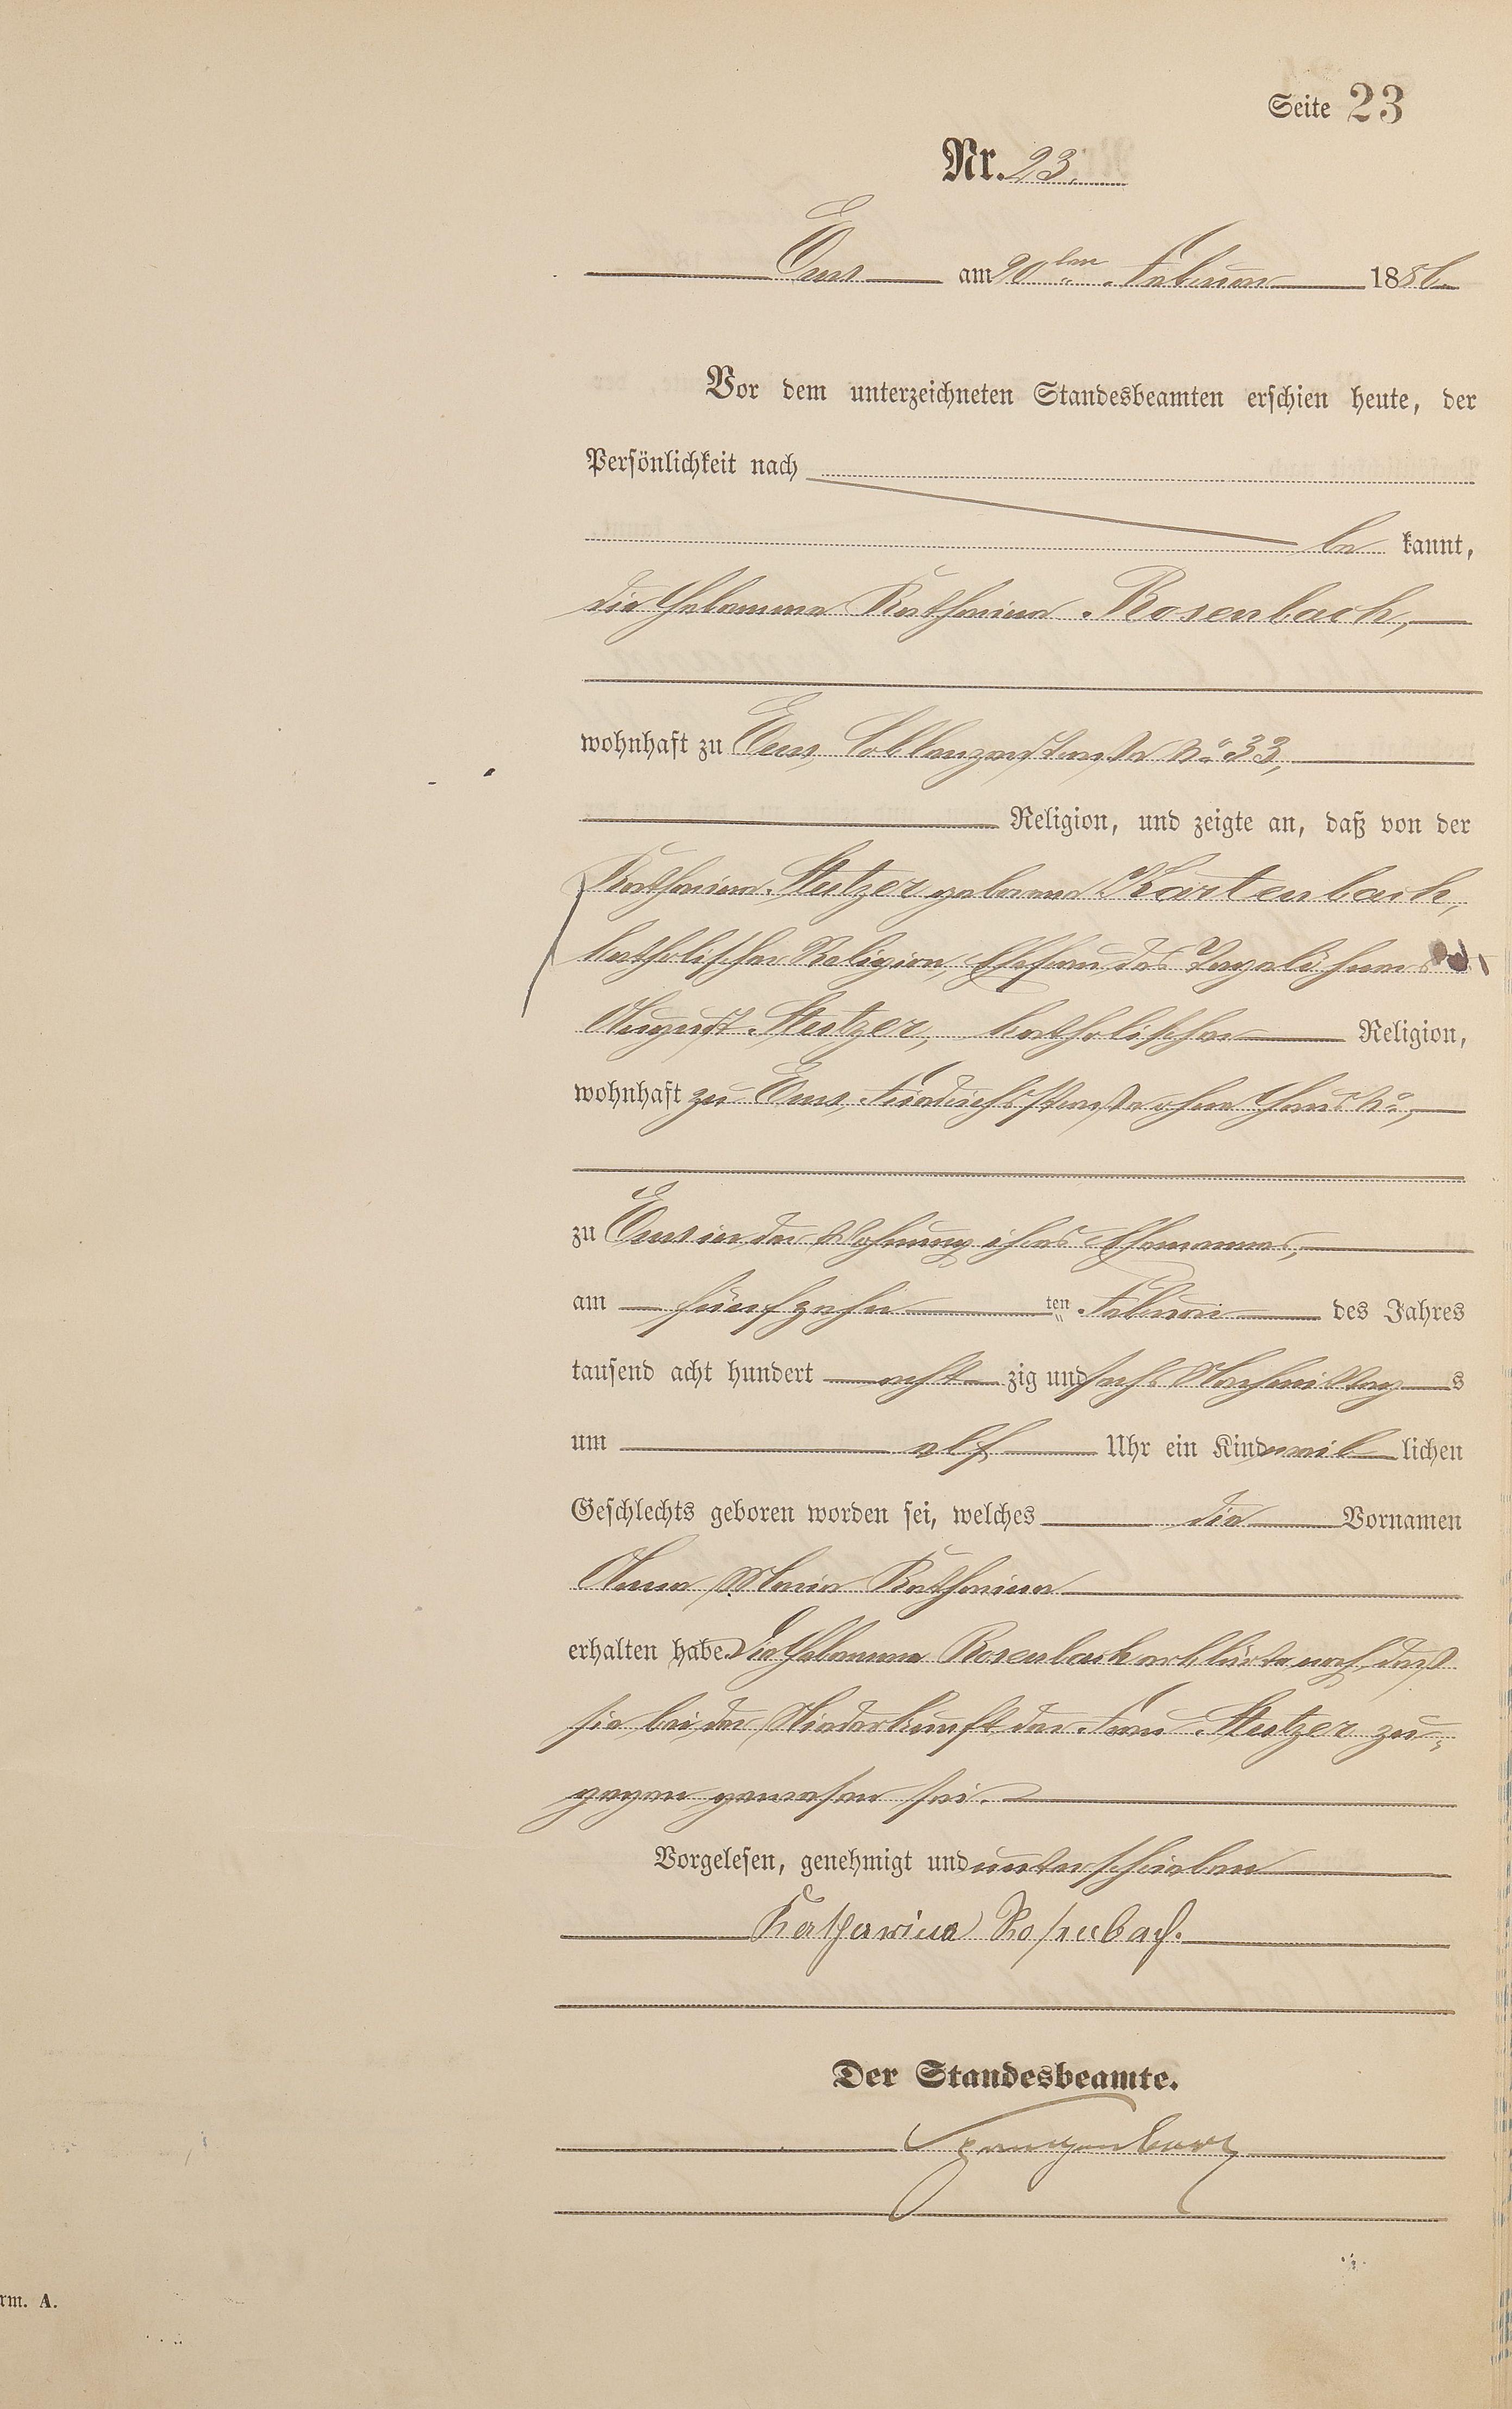 Seite 23
Nr. 23.
Ems am 20ten Februar 1886.
Vor dem unterzeichneten Standesbeamten erschien heute, der
Persönlichkeit nach
be kannt,
die Hebamme Katharina Rosenbach,
wohnhaft zu Ems, Coblenzerstraße No 33,
Religion, und zeigte an, daß von der
Katharina Stutzer geborene Kartenbach,
katholischer Religion, Ehefrau des Tagelöhners
August Stutzer, katholischer Religion,
wohnhaft zu Ems, Friedrichsstraße ohne Haus No,
zu Ems in der Wohnung ihres Ehemannes,
am fünfzehn ten Februar des Jahres
tausend acht hundert acht zig und sechs Nachmittag s
um elf Uhr ein Kind weib lichen
Geschlechts geboren worden sei, welches die Vornamen
Anna Maria Katharina
erhalten habe. Die Hebamme Rosenbach erklärte noch, daß
sie bei der Niederkunft der Frau Stutzer zu-
gegen gewesen sei.
Vorgelesen, genehmigt und unterschrieben
Katharina Rosenbach.
Der Standesbeamte.
rm. A.